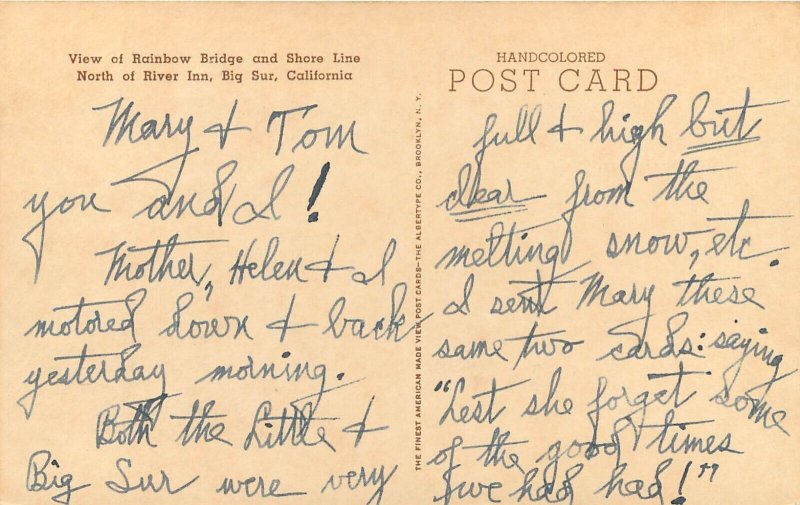 View of Rainbow Bridge and Shore Line
North of River Inn, Big Sur, California
Mary & Tom
you and I!
Mother, Helen & I
motored down & back
yesterday morning.
Both the Little &
Big Sur were very
THE FINEST AMERICAN MADE VIEW POST CARDS—THE ALBERTYPE CO., BROOKLYN, N. Y.
HANDCOLORED
POST CARD
full & high but
clear from the
melting snow, etc.
I sent Mary these
same two cards: saying
"Lest she forget some
of the good times
we had had!"